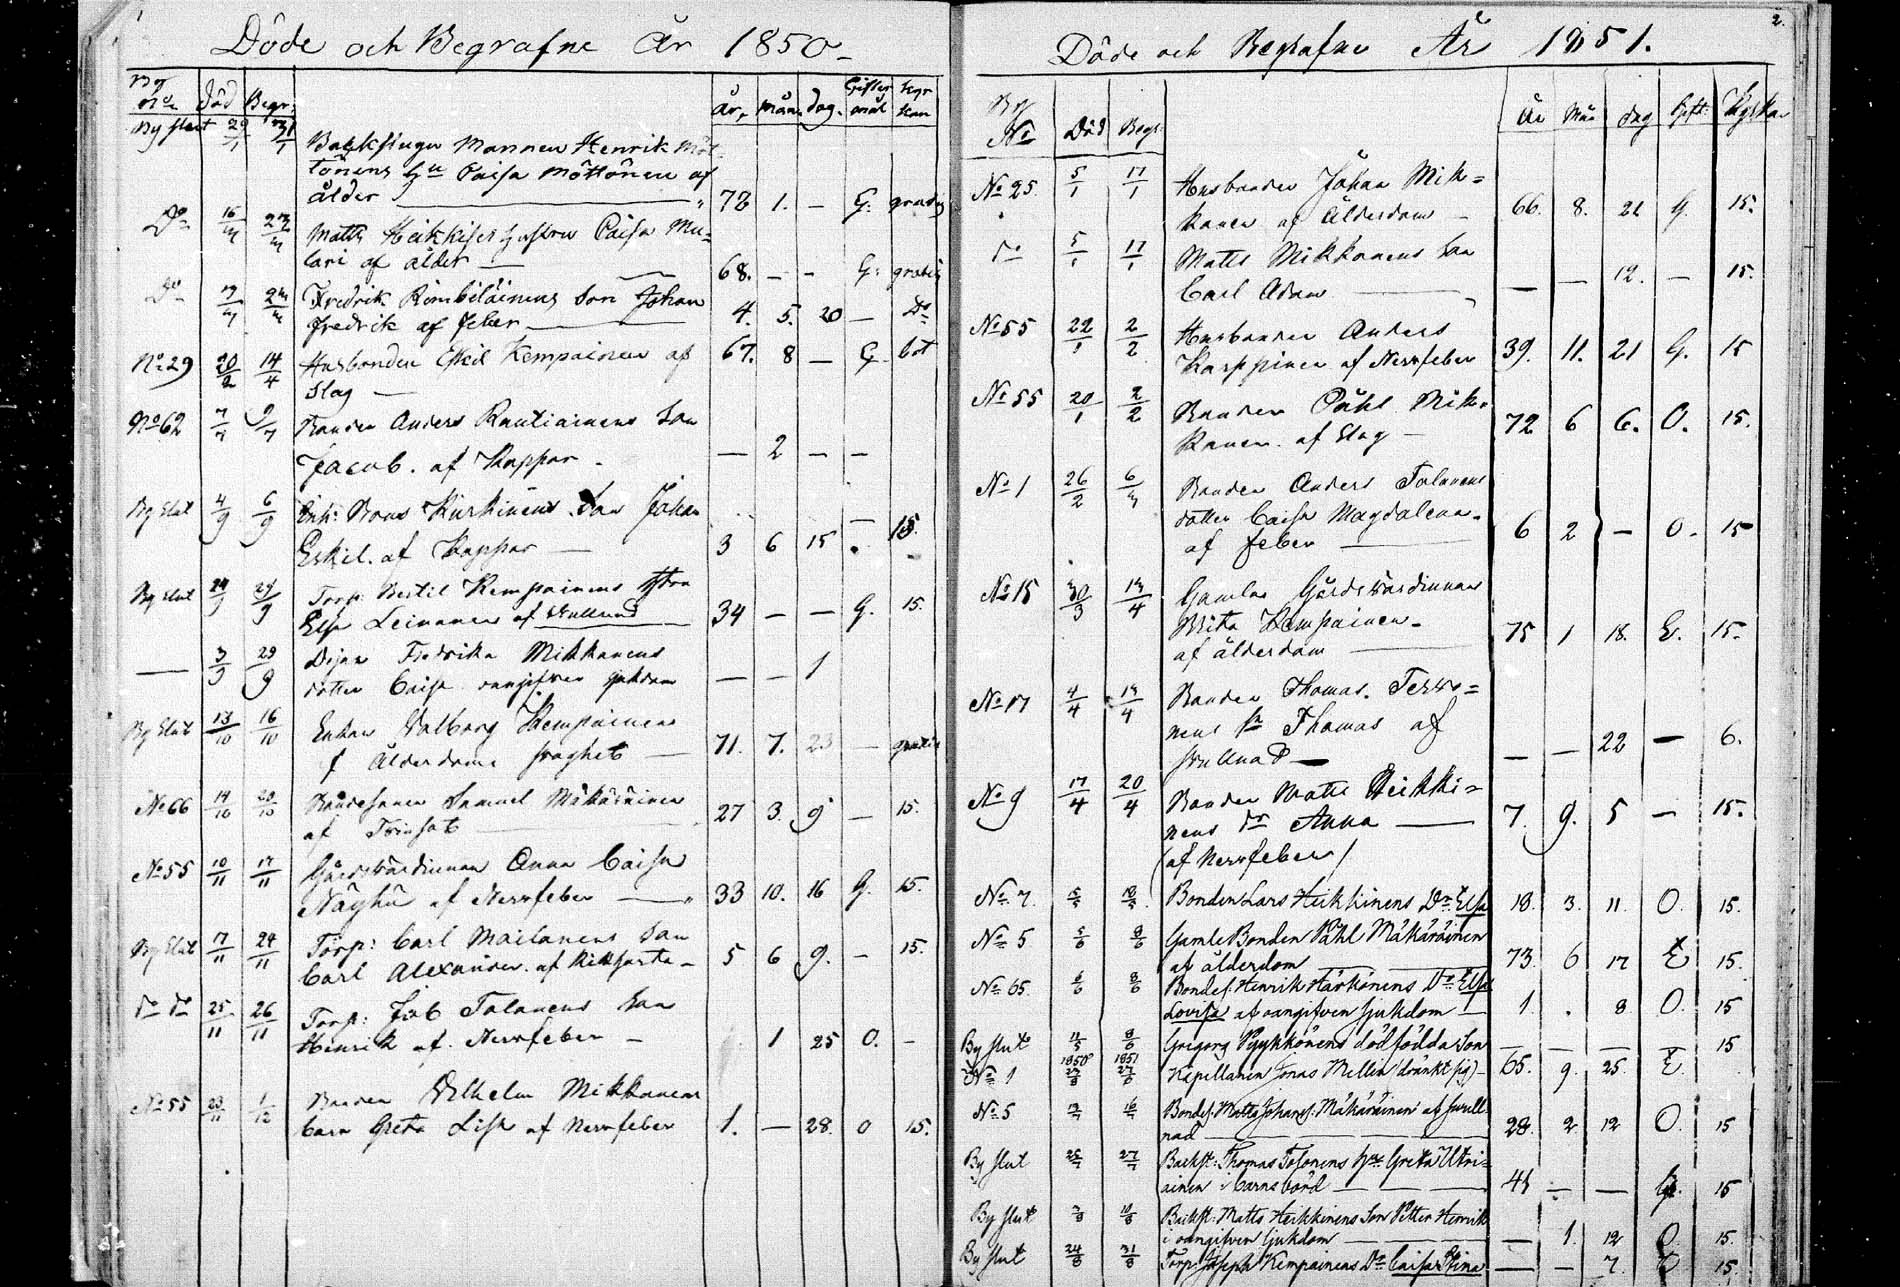 1
Döde och Begrafne År 1850
By No Död Begr: år, mån. dag. Gifter mål Kyr kan
By slut 29/1 31/1 Backstugu Mannen Henrik Möt-
tönens Hu Caisa Möttönen af
ålder 72 1. — G. gratis
Do Matts Heikkises hustru Caisa Mu-
lari af ålder — 68. — — G: gratis
Do Fredrik Rimbiläinens Son Johan
Fredrik af feber 4. 5. 20 — Do
No 29 20/2 14/4 Husbonden Eskil Kempainen af 67. 8 — G. bot
Slag —
No 62 Bonden Anders Rautiainens Son
Jacob. af Koppor — 2 — —
By Slut 4/9 6/9 Enk: Bons Kurkinens Son Johan
Eskil. af Koppor — 3 6 15 15
By Slut 24/9 29/9 Torp: Bertil Kempainens Hustru
Elsa Leinonen af 34 — — G. 15.
— 3/9 29/9 Pigan Fredrika Mikkonens
dotter Caisa oangifven sjukdom — — 1
By Slut 13/10 16/10 Enkan Valborg Kempainen
f Ålderdoms svaghet — 71. 7. 23 — gratis
No 66 14/10 20/10 Bondesonen Samuel Mäkäräinen
af Trinsot 27 3. 9 — 15.
No 55 10/11 17/11 Gårdsvärdinnan Anna Caisa
Näyhü af Nervfeber 33 10. 16 G. 15.
By Slut 17/11 24/11 Torp: Carl Mailanens Son
Carl Alexander. af Kikhosta — 5 6 9. — 15.
Do Do 25/11 26/11 Torp: Job Tolonens Son
Henrik af. Nervfeber — 1 25 O. —
No 55 23/11 1/12 Bonden Vilhelm Mikkonens
barn Greta Lisa af Nervfeber 1. — 28. O 15.
2.
Döde och Begrafne År 1851.
By No Död Begr. År Mån dag Gift. Kyrkan
No 25. 5/1 17/1 Husbonden Johan Mik=
konen af Ålderdom — 66. 8. 21 G. 15.
Do 5/1 17/1 Matts Mikkonens Son
Carl Adam — — 12. — 15.
No 55 22/1 2/2 Husbonden Anders
Karppinen af Nervfeber 39. 11. 21 G. 15
No 55 20/1 2/2 Bonden Påhl Mik=
konen. af Slag — 72 6 6. O. 15.
No 1 26/2 6/3 Bonden Anders Tolonens
dotter Caisa Magdalena.
af feber 6 2 — O. 15
No 15 30/3 13/4 Gamla Gårdsvärdinnan
Brita Kempainen.
af ålderdom 75 1 18. E. 15.
No 17 4/4 13/4 Bonden Thomas. Tervo=
nens Sn Thomas af
— — 22 — 6.
No 9 17/4 20/4 Bonden Matts Heikki=
nens Dr Anna — 7. 9. 5 — 15.
(af Nervfeber)
No 7 Bonden Lars Heikkinens Dr Elsa 18. 3. 11. O. 15.
No 5 Gamle Bonden Påhl Mäkäräinen
af ålderdom 73. 6 17 E 15.
No 65. Bondes: Henrik Härkönens Dr Elsa
Lovisa af oangifven Sjukdom 1. . 8 O. 15
By slut Grigorg Pyykkönens dödfödda Son — — — — 15
No 1 1850 1851 Kapellanen Jonas Mellin dränkt sig — 65. 9. 25. E
No 5 Bondes: Matts Johans: Mäkäräinen af svull-
nad 28. 2 12 O. 15
By slut 27/7 Backst: Thomas Tolonens Hu Greta Utri=
ainen i barnsbörd — 41 — — G. 15
By slut 10/8 Backst: Matts Heikkinens Son Petter Henrik
i oangifven Sjukdom — 1. 12 O 15.
By slut 24/8 31/8 Torp: Joseph Kempainens Dr Caisa Stina — — 7. E 15